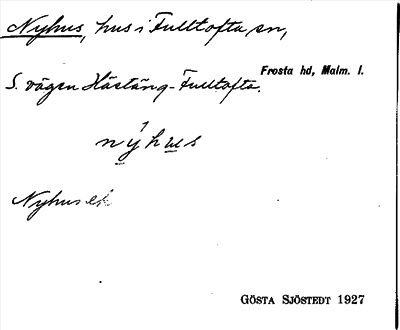 Nyhus, hus i Fulltofta sn,
Frosta hd, Malm. l.
S. vägen Hästäng - Fulltofta.
nýhus
Nyhus ek
GÖSTA SJÖSTEDT 1927